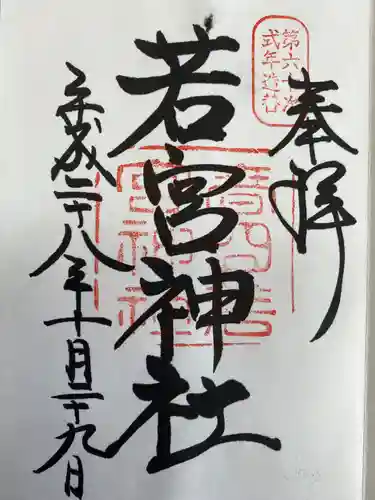 奉拝
第六十次
式年造替
若宮神社
平成二十八年十月二十九日